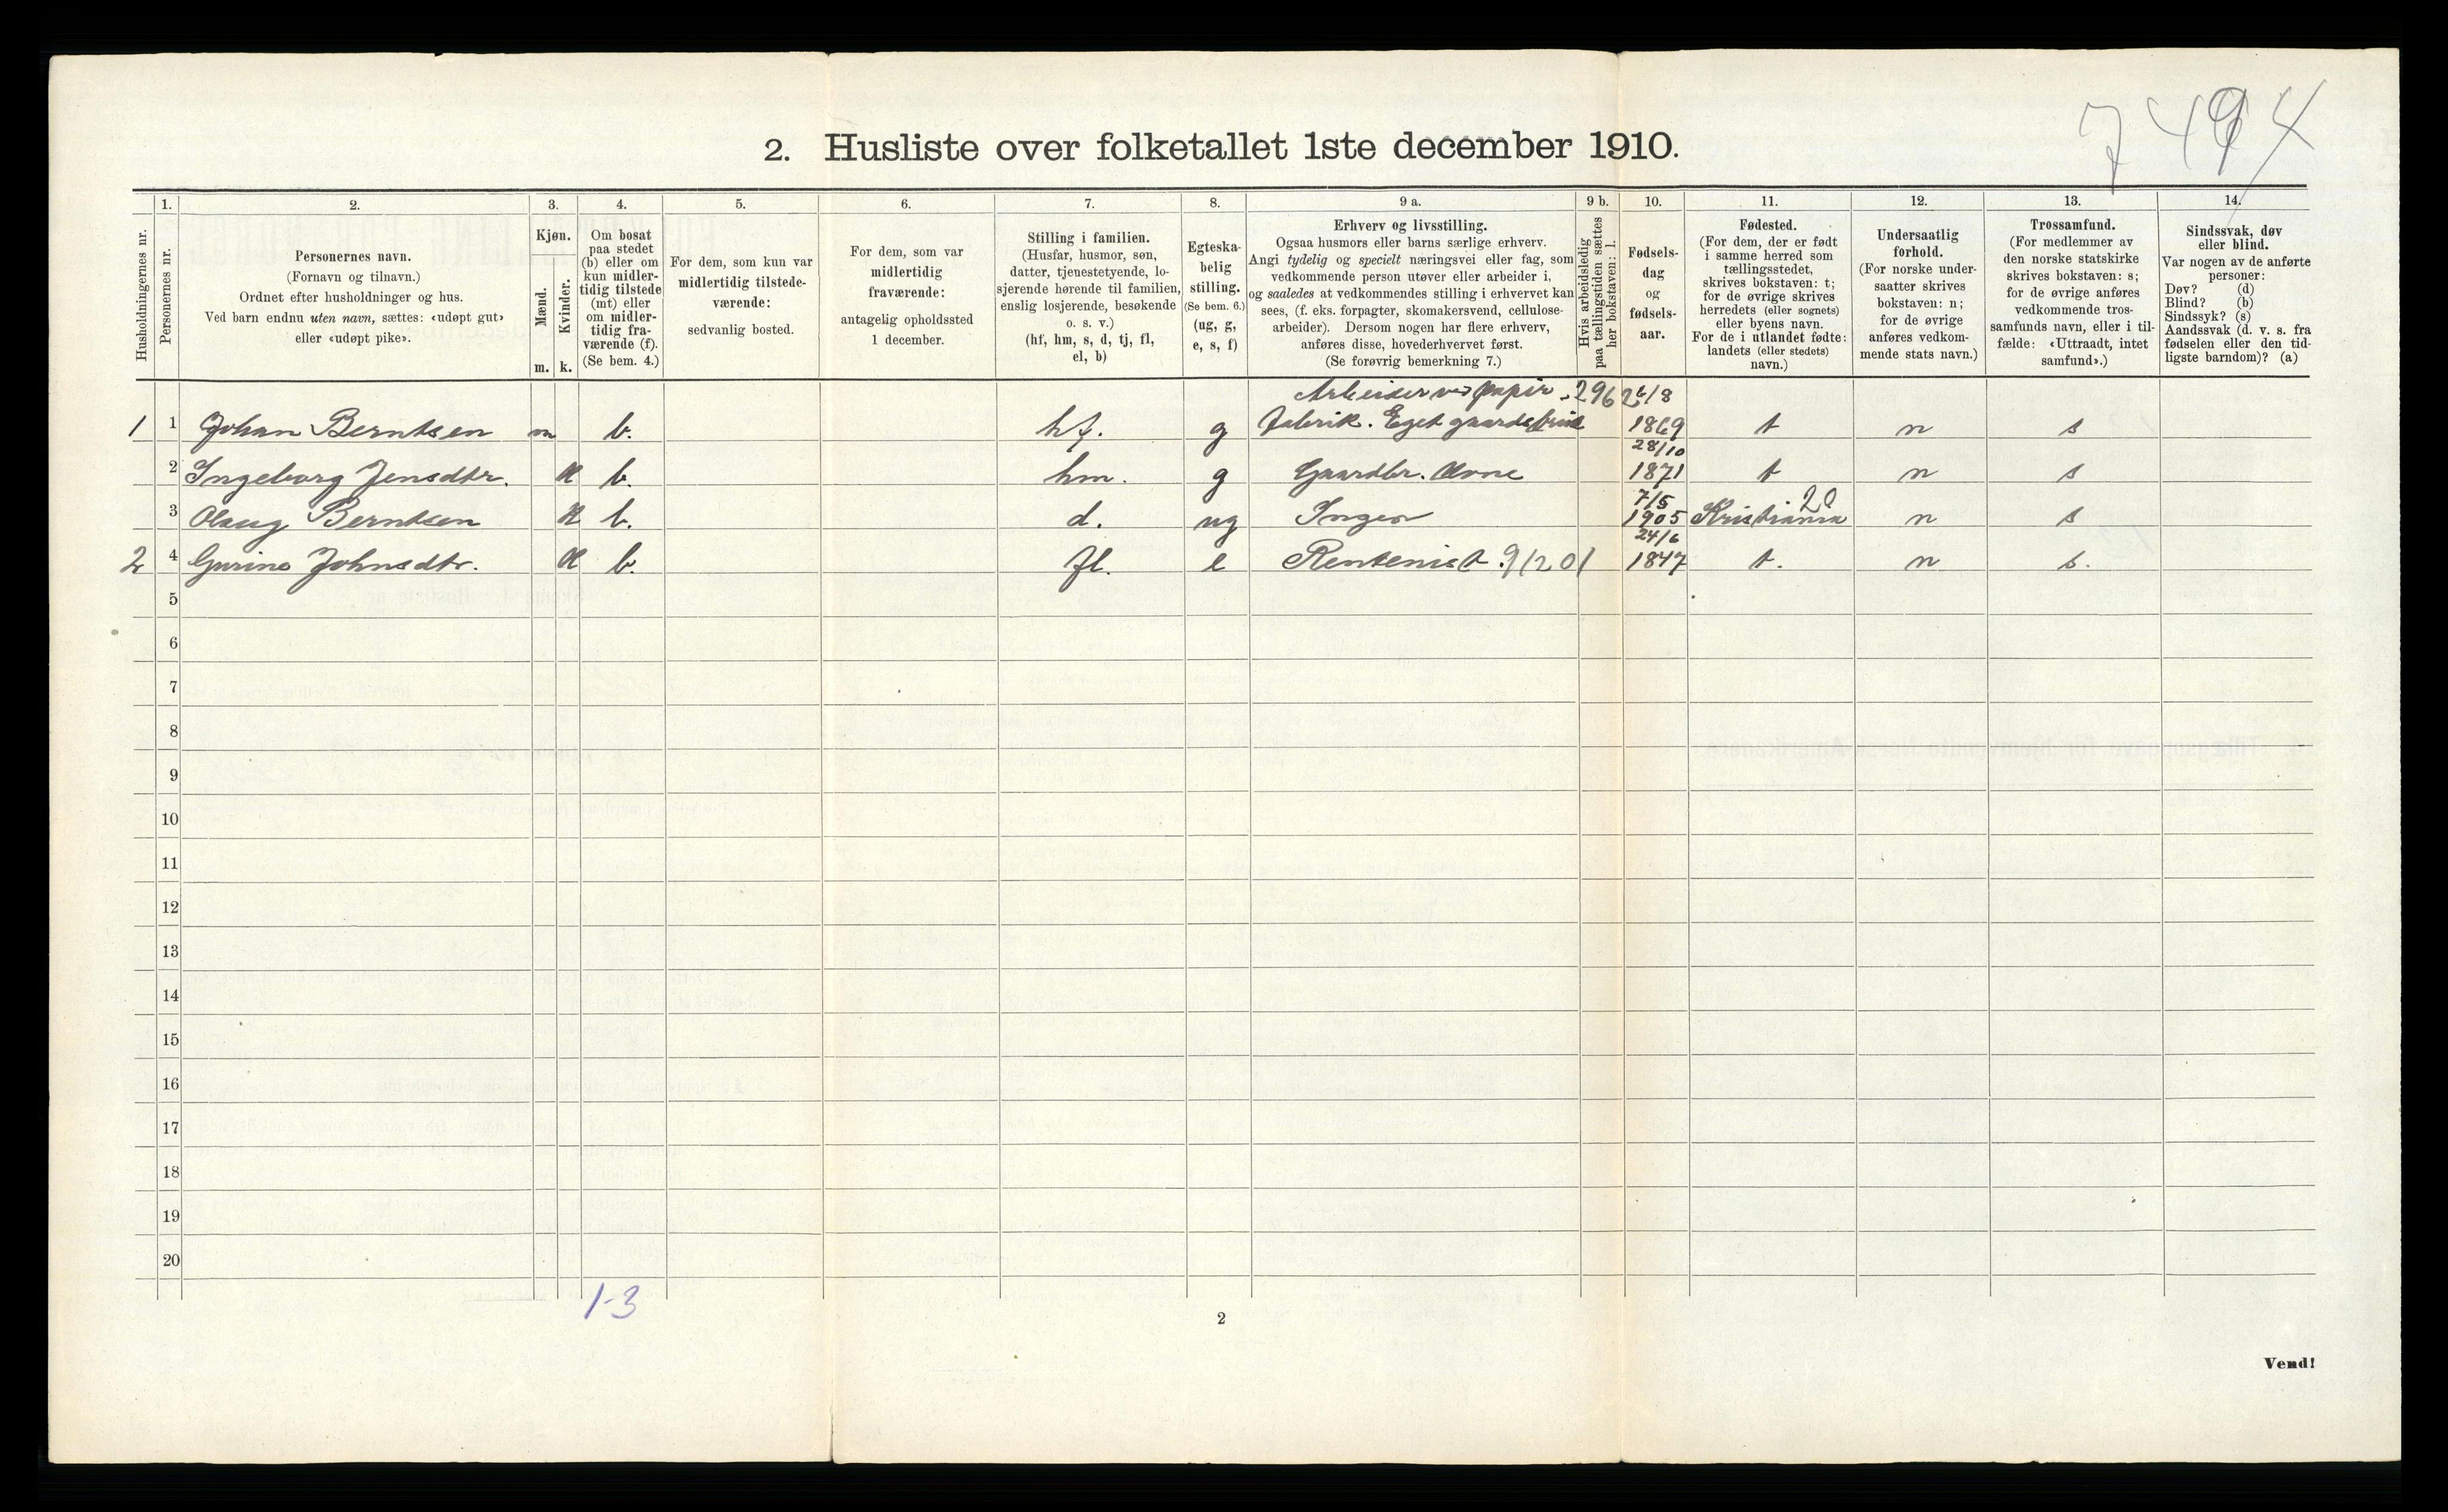 7494
2. Husliste over folketallet 1ste december 1910.
Husholdningernes nr.
1.
Personernes nr.
2.
Personernes navn.
(Fornavn og tilnavn.)
Ordnet efter husholdninger og hus.
Ved barn endnu uten navn, sættes: «udøpt gut»
eller «udøpt pike».
3.
Kjøn.
Mænd.
Kvinder.
m. k.
4.
Om bosat
paa stedet
(b) eller om
kun midler-
tidig tilstede
(mt) eller
om midler-
tidig fra-
værende (f).
(Se bem. 4.)
5.
For dem, som kun var
midlertidig tilstede-
værende:
sedvanlig bosted.
6.
For dem, som var
midlertidig
fraværende:
antagelig opholdssted
1 december.
7.
Stilling i familien.
(Husfar, husmor, søn,
datter, tjenestetyende, lo-
sjerende hørende til familien,
enslig losjerende, besøkende
o. s. v.)
(hf, hm, s, d, tj, fl,
el, b)
8.
Egteska-
belig
stilling.
(Se bem. 6.)
(ug, g,
e, s, f)
9 a.
Erhverv og livsstilling.
Ogsaa husmors eller barns særlige erhverv.
Angi tydelig og specielt næringsvei eller fag, som
vedkommende person utøver eller arbeider i,
og saaledes at vedkommendes stilling i erhvervet kan
sees, (f. eks. forpagter, skomakersvend, cellulose-
arbeider). Dersom nogen har flere erhverv,
anføres disse, hovederhvervet først.
(Se forøvrig bemerkning 7.)
9 b.
Hvis arbeidsledig
paa tællingstiden sættes
her bokstaven: l.
10.
Fødsels-
dag
og
fødsels-
aar.
11.
Fødested.
(For dem, der er født
i samme herred som
tællingsstedet,
skrives bokstaven: t;
for de øvrige skrives
herredets (eller sognets)
eller byens navn.
For de i utlandet fødte:
landets (eller stedets)
navn.)
12.
Undersaatlig
forhold.
(For norske under-
saatter skrives
bokstaven: n;
for de øvrige
anføres vedkom-
mende stats navn.)
13.
Trossamfund.
(For medlemmer av
den norske statskirke
skrives bokstaven: s;
for de øvrige anføres
vedkommende tros-
samfunds navn, eller i til-
fælde: «Uttraadt, intet
samfund».)
14.
Sindssvak, døv
eller blind.
Var nogen av de anførte
personer:
Døv? (d)
Blind? (b)
Sindssyk? (s)
Aandssvak (d. v. s. fra
fødselen eller den tid-
ligste barndom)? (a)
Arbeider ved papir 296
1 1 Johan Berntsen m b. hf. g fabrik. Eget gaardsbruk 1869 t n s
28/10
2 Ingeborg Jensdtr. k b. hm. g Gaardbr. 1871 t n s
7/5 20
3 Olaug Berntsen k b. d. ug Ingen 1905 Kristiania n s
24/6
2 4 Gurine Johnsdtr. k b. fl. e Rentenist 9/201 1847 t. n s.
5
6
7
8
9
10
11
12
13
14
15
16
17
18
19
20
1-3
2
Vend!